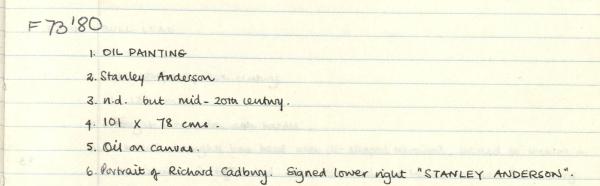 F73'80
1. OIL PAINTING
2. Stanley Anderson
3. n.d. but mid-20th century.
4. 101 x 78 cms.
5. Oil on canvas.
6. Portrait of Richard Cadbury. Signed lower right "STANLEY ANDERSON".